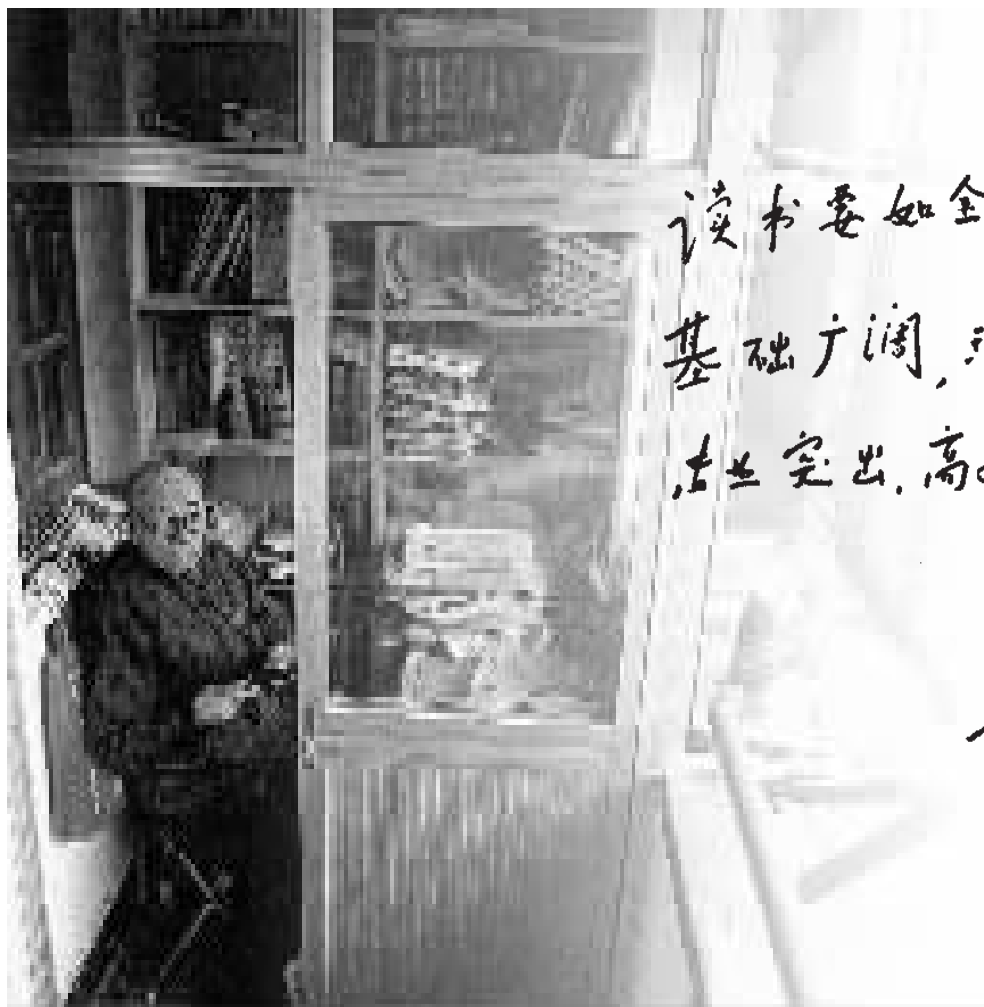 读书要如金
基础广阔,
专业突出,高